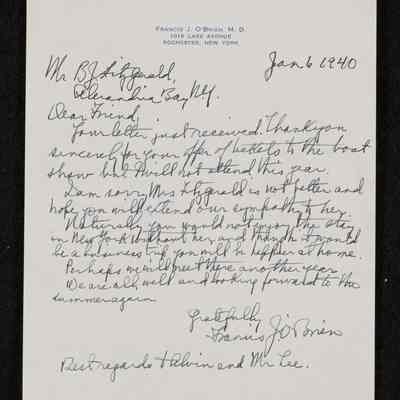 FRANCIS J. O'BRIEN, M. D.
1019 LAKE AVENUE
ROCHESTER, NEW YORK
Jan. 6 1940
Mr B J Fitzgerald,
Alexandria Bay, N.Y.
Dear Friend,
Your letter just received. Thank you
sincerely for your offer of tickets to the boat
show but I will not attend this year.
I am sorry Mrs Fitzgerald is not better and
hope you will extend our sympathy to her.
Naturally you would not enjoy the stay
in New York without her, and though it would
be a business trip you will be happier at home.
Perhaps we will meet there another year.
We are all well and looking forward to the
summer again
Gratefully
Francis J O'Brien
Best regards to Alvin and Mr Lee.